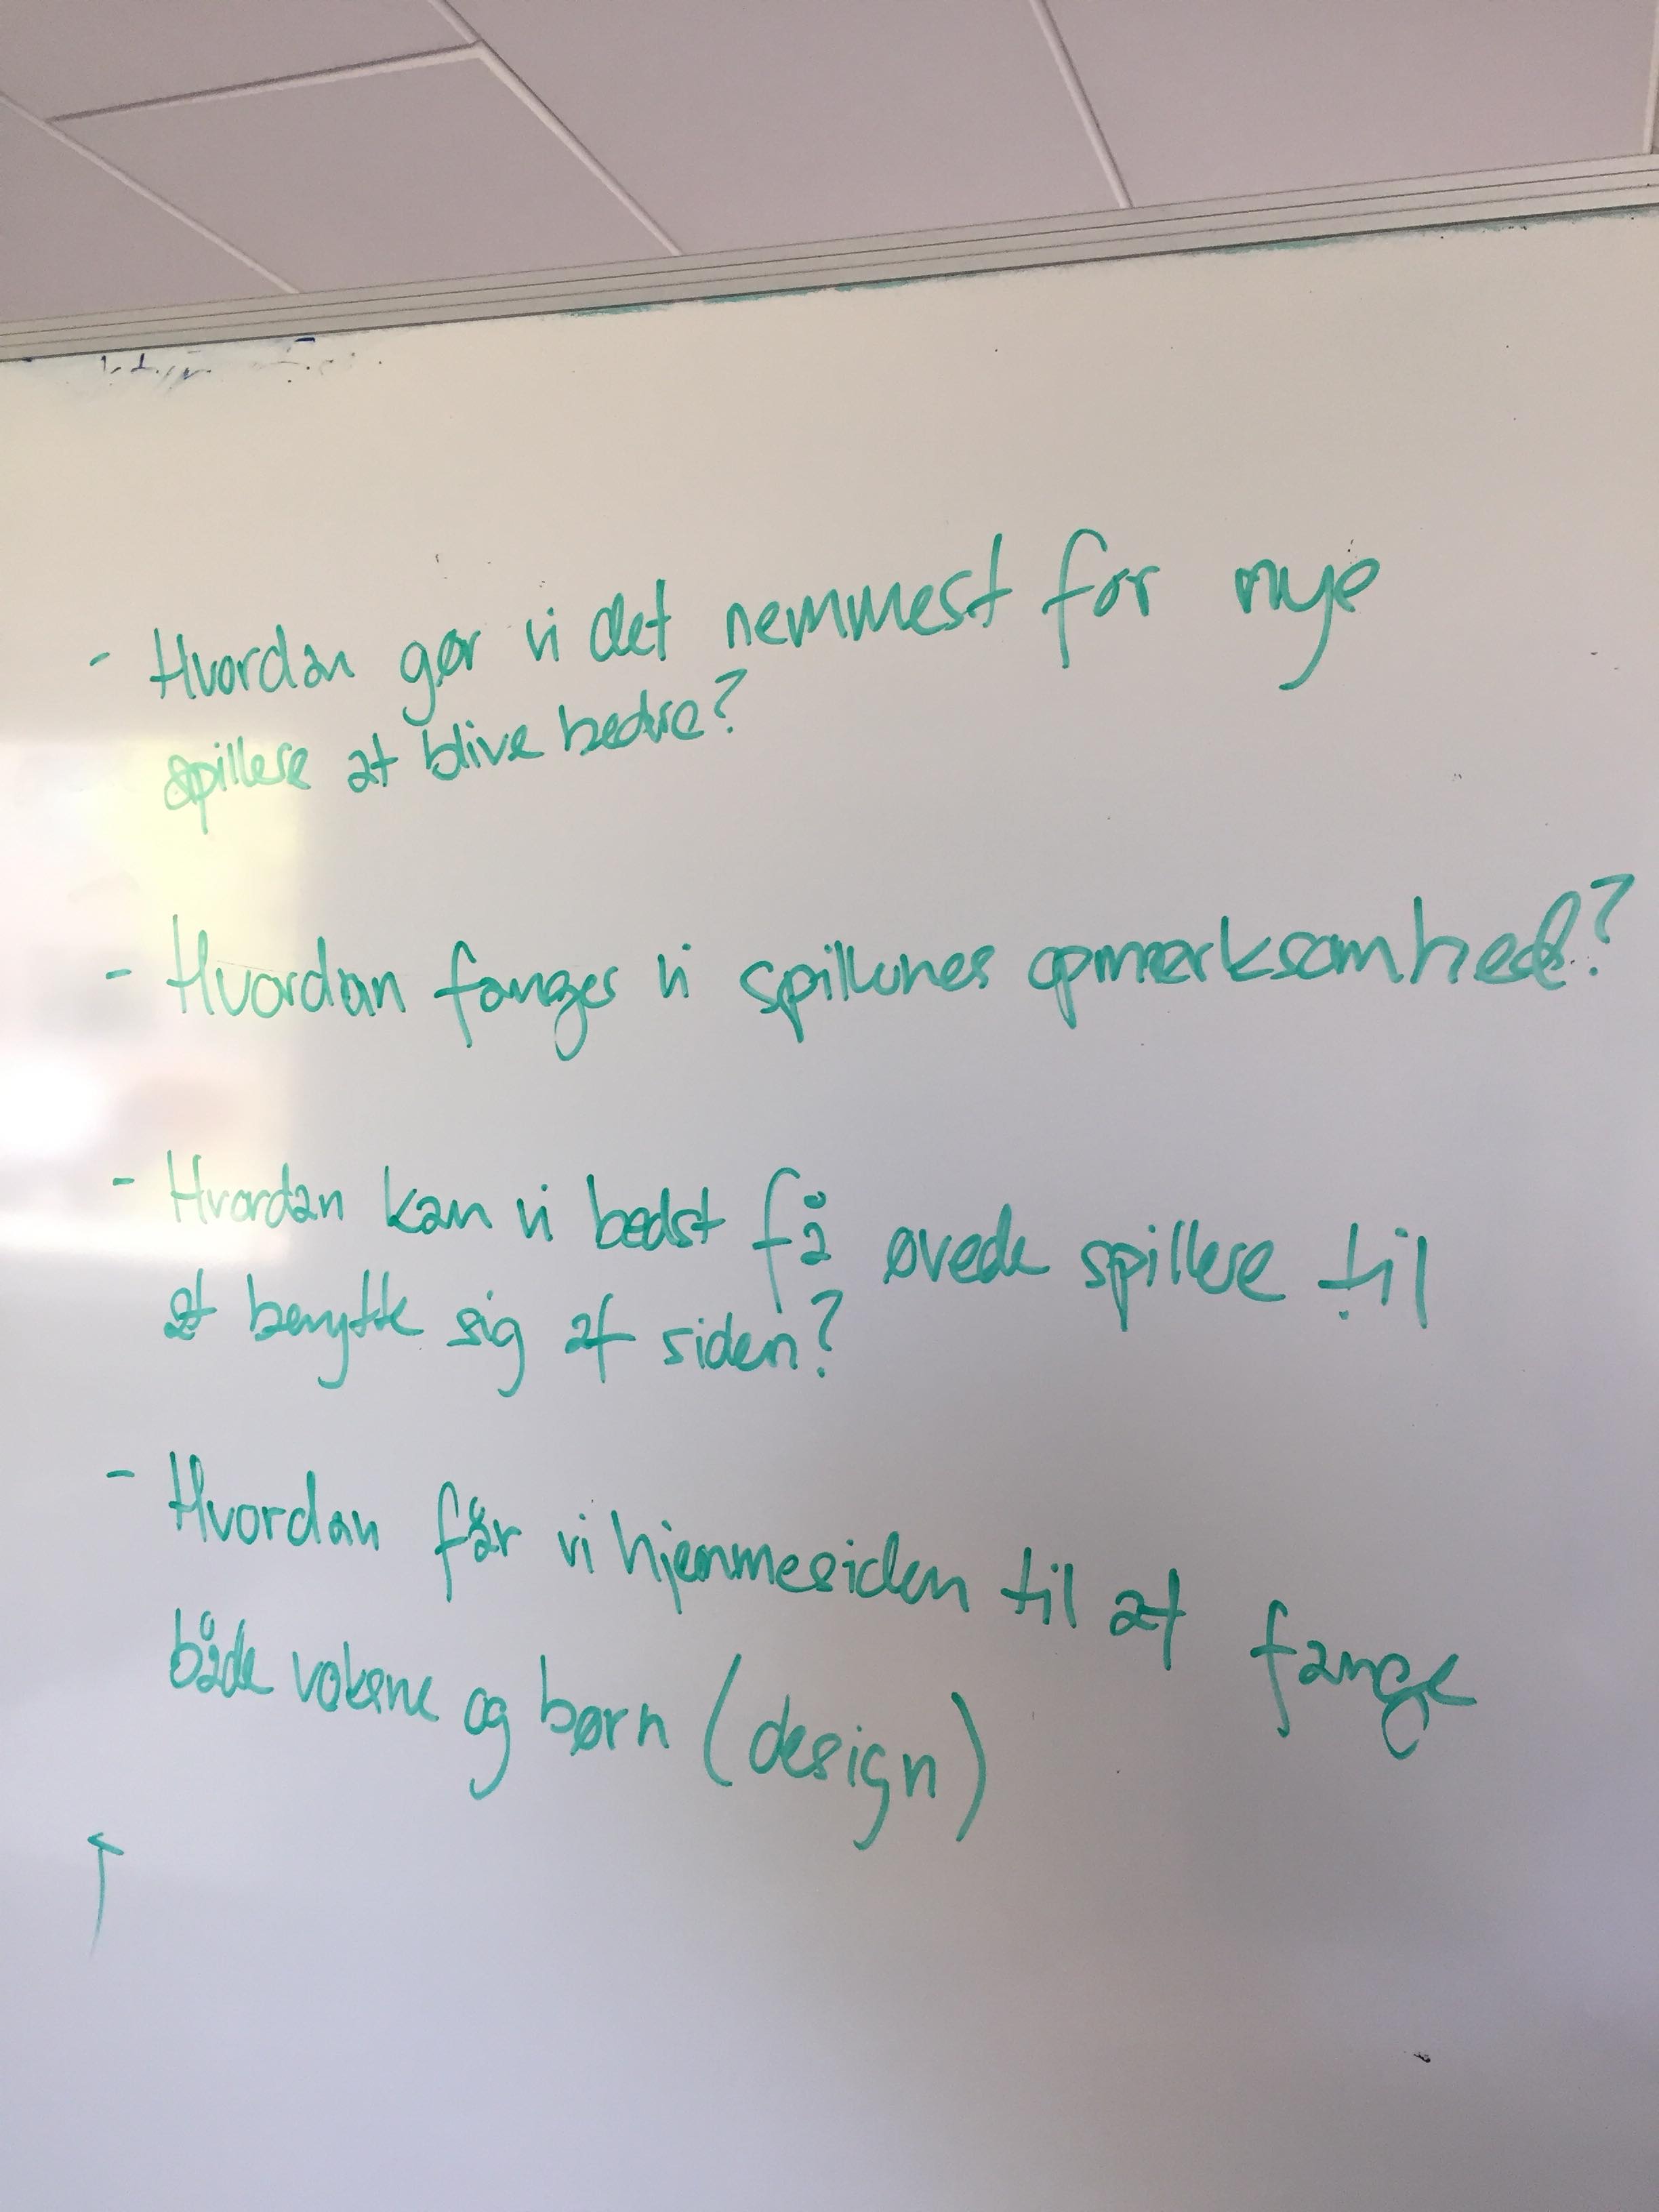 - Hvordan gør vi det nemmest for nye
spillere at blive bedre?
- Hvordan fanger vi spillernes opmærksomhed?
- Hvordan kan vi bedst få øvede spillere til
at benytte sig af siden?
- Hvordan får vi hjemmesiden til at fange
både voksne og børn (design)